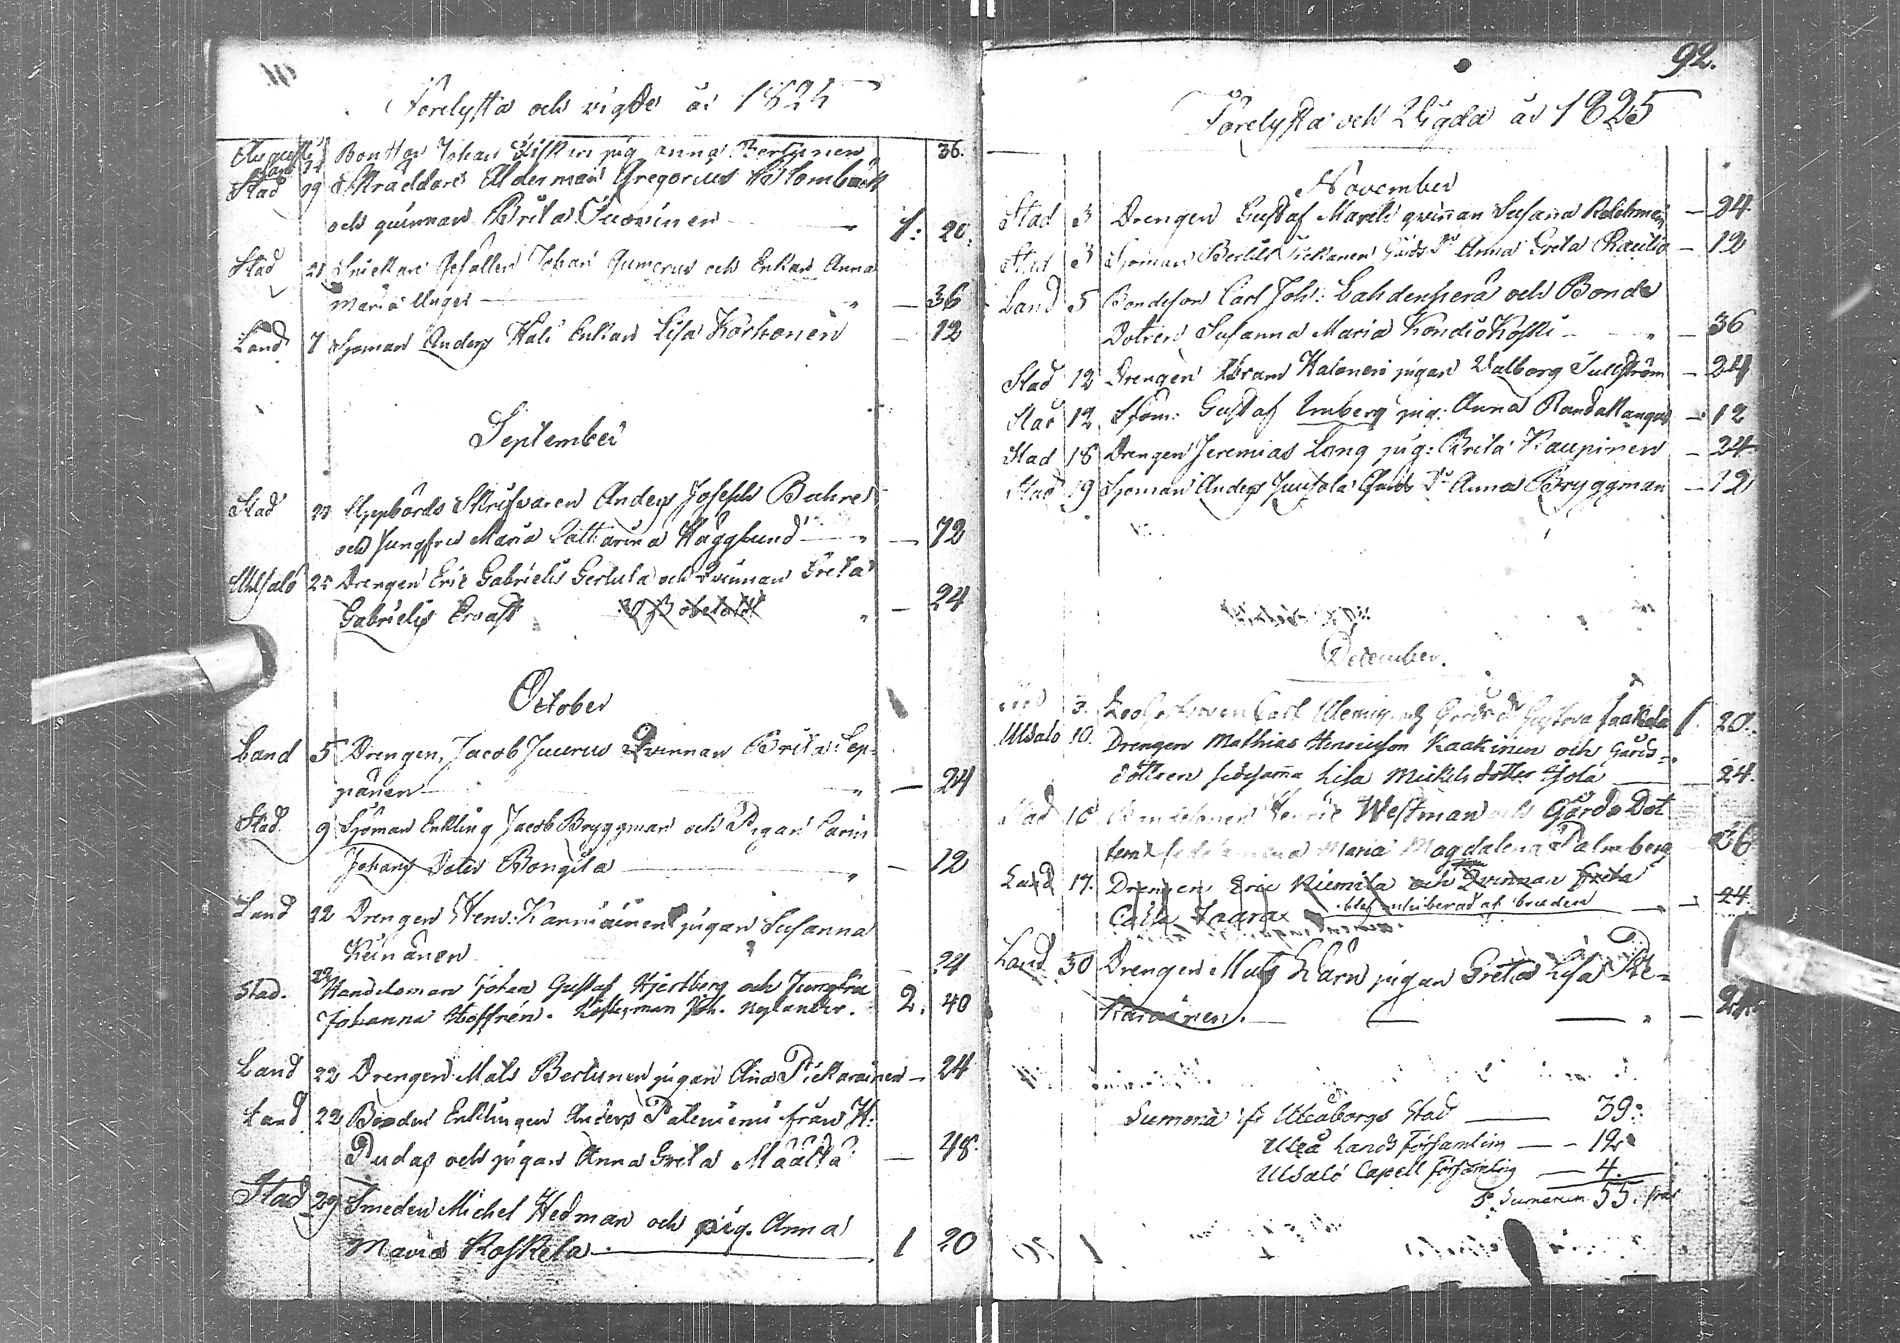 Förelysta och vigde år 1825
Augusti Bonden Johan pig. Anna Bertunen 36.
Stad 19 Skraddare Ålderman Gregorius
och quinnan Brita Suovinen 1: 20.
Stad 21 Snickare Gesällen Johan och Enkan Anna
Maria Unger 36
Land 7 Sjöman Anders Hali Enkan Lisa Korhonen 12
September
Stad Uppbörds Skrifvaren Anders Joseph Bahre
och Jungfru Maria Catharina Hägglund 72
Uhlsalo 25 Drengen Eric Gabrielss Gertula och Qvinnan Greta
Gabriels Ervast obetalt 24
October
Land 5 Drengen Jacob Juurus Qvinnan Brita Sep-
pänen 24
Stad 9 Sjöman Enkling Jacob Bryggman och Pigan Carin
Johans Doter Bongila 12
Land 22 Drengen Henr: Karmiainen pigan Susanna
Keinänen 24
Stad. 22 Handelsman Johan Gustaf Hjertberg och Jungfru
Johanna Hoffrén. Joh. Nylander. 2. 40
Land 22 Drengen Mats Bertunen pigan Ana Pickarainen 24
Land 22 Bonden Enklingen Anders från H:
Pudas och pigan Anna Greta Määttä 48
Stad 29 Smeden Michel Hedman och pig. Anna
Maria Koskela 1 20
92.
Förelysta och Vigda år 1825
November
Stad 3 Drengen Gustaf qvinnan Susanna 24
Stad 3 Sjöman Bertill Tickanen Gårds Dr Anna Greta Rautio 12
Land 5 Bondeson Carl Joh: Lahdenperä och Bonde
Dotren Susanna Maria Kondio Koski 36
Stad 12 Drengen Abram Halonen pigan Walborg 24
Stad 12 Sjöm: Gustaf Imberg pig. Anna 12
Stad 18 Drengen Jeremias Long pig: Brita Kaupinen 24
Stad 19 Sjöman Anders Juusola Gårds Dr Anna Bryggman 12
December.
3. Carl och Gårds dr Gustava Jaakola 1. 20.
Uhlsalo 10. Drengen Mathias Henricsson Kaakinen och Gårds-
dottren sedesamma Lisa Mickelsdotter Hjola 24.
Stad 16 Henric Westman och Gårds Dot
tern sedesamma Maria Magdalena Palmberg 36
Land 17. Drengen Eric Niemitä och Qvinnan Greta
Cajsa Laara af bruden 24
Land 30 Drengen Mats Kärn pigan Greta Lisa Pi-
karainen. 24
Summa ifr Uleåborgs Stad 39:
Uleå Lands Församling 12
Uhlsalo Capell Församling 4
Sumarum 55. par